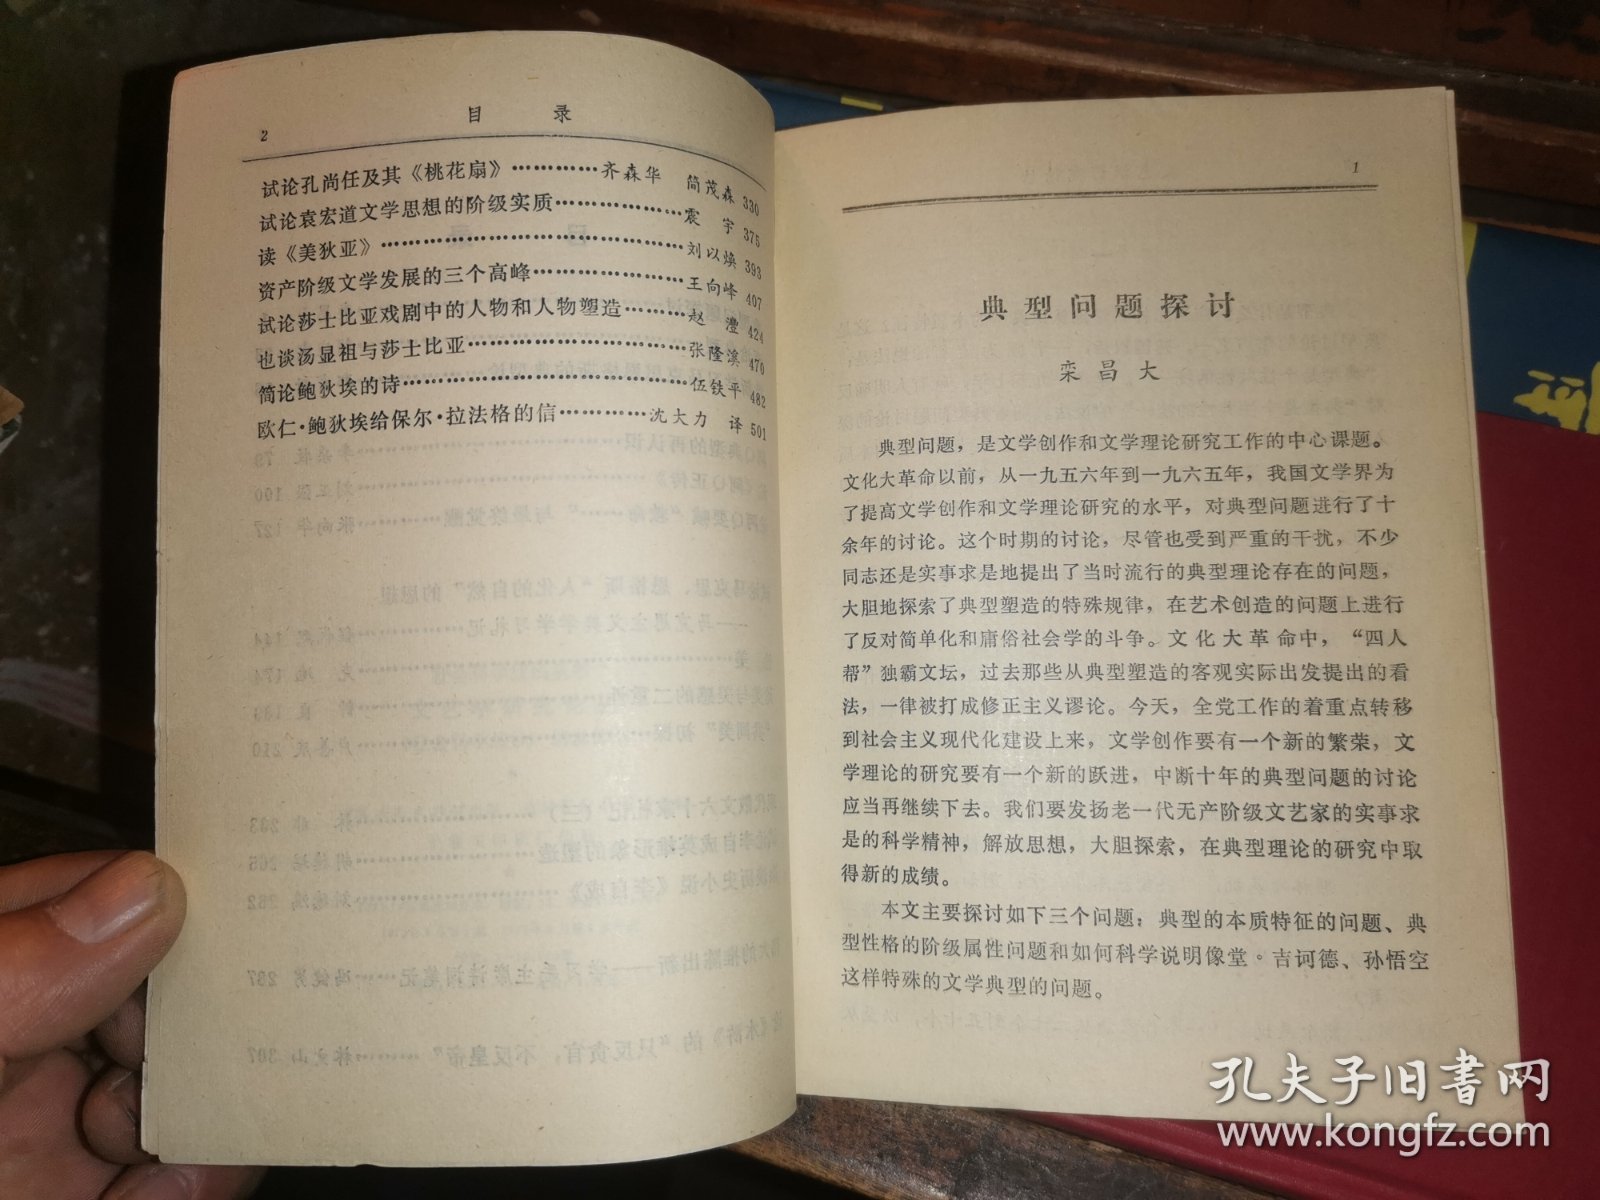 2
目　　录
试论孔尚任及其《桃花扇》…………齐森华　简茂森 330
试论袁宏道文学思想的阶级实质………………震　宇 375
读《美狄亚》……………………………………刘以焕 393
资产阶级文学发展的三个高峰…………………王向峰 407
试论莎士比亚戏剧中的人物和人物塑造………赵　澧 424
也谈汤显祖与莎士比亚…………………………张隆溪 470
简论鲍狄埃的诗…………………………………伍铁平 482
欧仁·鲍狄埃给保尔·拉法格的信…………沈大力　译 501
1
典型问题探讨
栾昌大
典型问题，是文学创作和文学理论研究工作的中心课题。
文化大革命以前，从一九五六年到一九六五年，我国文学界为
了提高文学创作和文学理论研究的水平，对典型问题进行了十
余年的讨论。这个时期的讨论，尽管也受到严重的干扰，不少
同志还是实事求是地提出了当时流行的典型理论存在的问题，
大胆地探索了典型塑造的特殊规律，在艺术创造的问题上进行
了反对简单化和庸俗社会学的斗争。文化大革命中，“四人
帮”独霸文坛，过去那些从典型塑造的客观实际出发提出的看
法，一律被打成修正主义谬论。今天，全党工作的着重点转移
到社会主义现代化建设上来，文学创作要有一个新的繁荣，文
学理论的研究要有一个新的跃进，中断十年的典型问题的讨论
应当再继续下去。我们要发扬老一代无产阶级文艺家的实事求
是的科学精神，解放思想，大胆探索，在典型理论的研究中取
得新的成绩。
本文主要探讨如下三个问题：典型的本质特征的问题、典
型性格的阶级属性问题和如何科学说明像堂·吉诃德、孙悟空
这样特殊的文学典型的问题。
孔夫子旧书网
www.kongfz.com